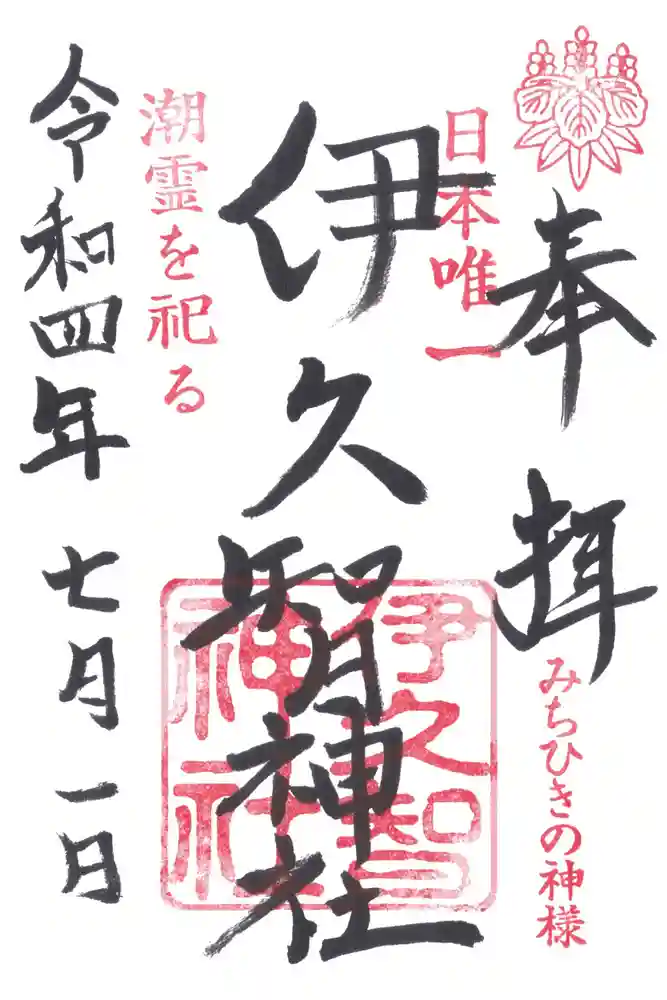 奉拝
みちひきの神様
日本唯一
伊久智神社
伊久智神社
潮霊を祀る
令和四年 七月一日